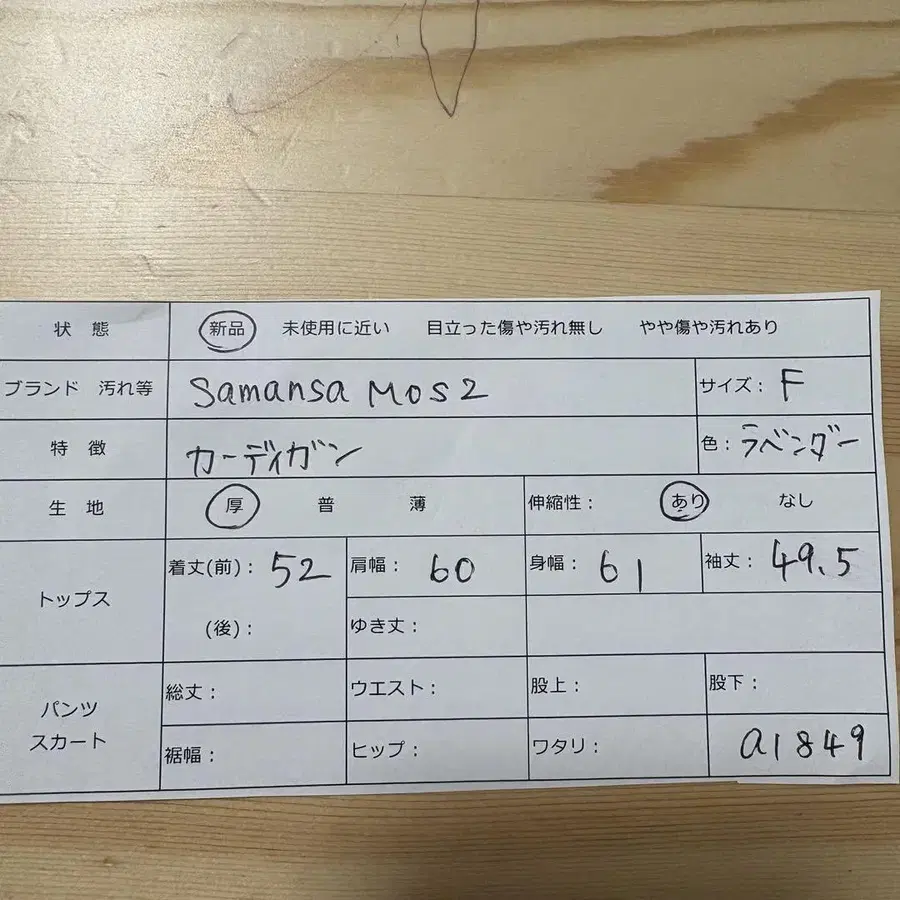 状 態 新品 未使用に近い 目立った傷や汚れ無し やや傷や汚れあり
ブランド 汚れ等 Samansa MOS2 サイズ： F
特 徴 カーディガン 色： ラベンダー
生 地 厚 普 薄 伸縮性： あり なし
トップス 着丈(前)： 52 肩幅： 60 身幅： 61 袖丈： 49.5
(後)： ゆき丈：
パンツ スカート 総丈： ウエスト： 股上： 股下：
裾幅： ヒップ： ワタリ： a1849